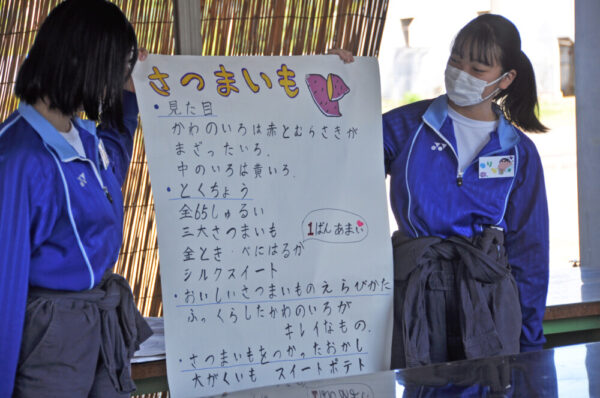 さつまいも
・見た目
かわのいろは赤とむらさきが
まざったいろ.
中のいろは黄いろ.
・とくちょう
全65しゅるい
三大さつまいも
金とき・べにはるか
シルクスイート
1ばんあまい
・おいしいさつまいものえらびかた
ふっくらしたかわのいろが
キレイなもの.
・さつまいもをつかったおかし
大がくいも スイートポテト